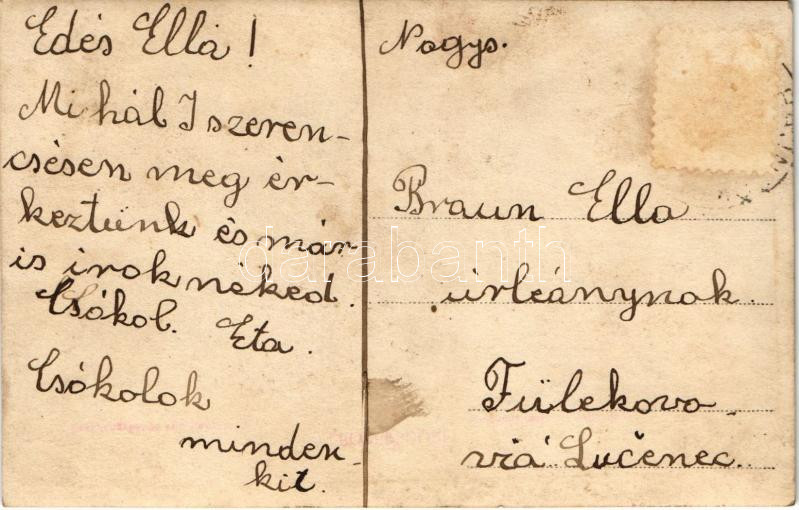 Edés Ella!
Mi hál I szeren-
csésen meg ér-
keztünk és már-
is irok néked.
Csókol. Eta.
Csókolok
minden-
kit.
Nagys.
Braun Ella
úrleánynak.
Fülekovo
viá Lučenec.
darabanth